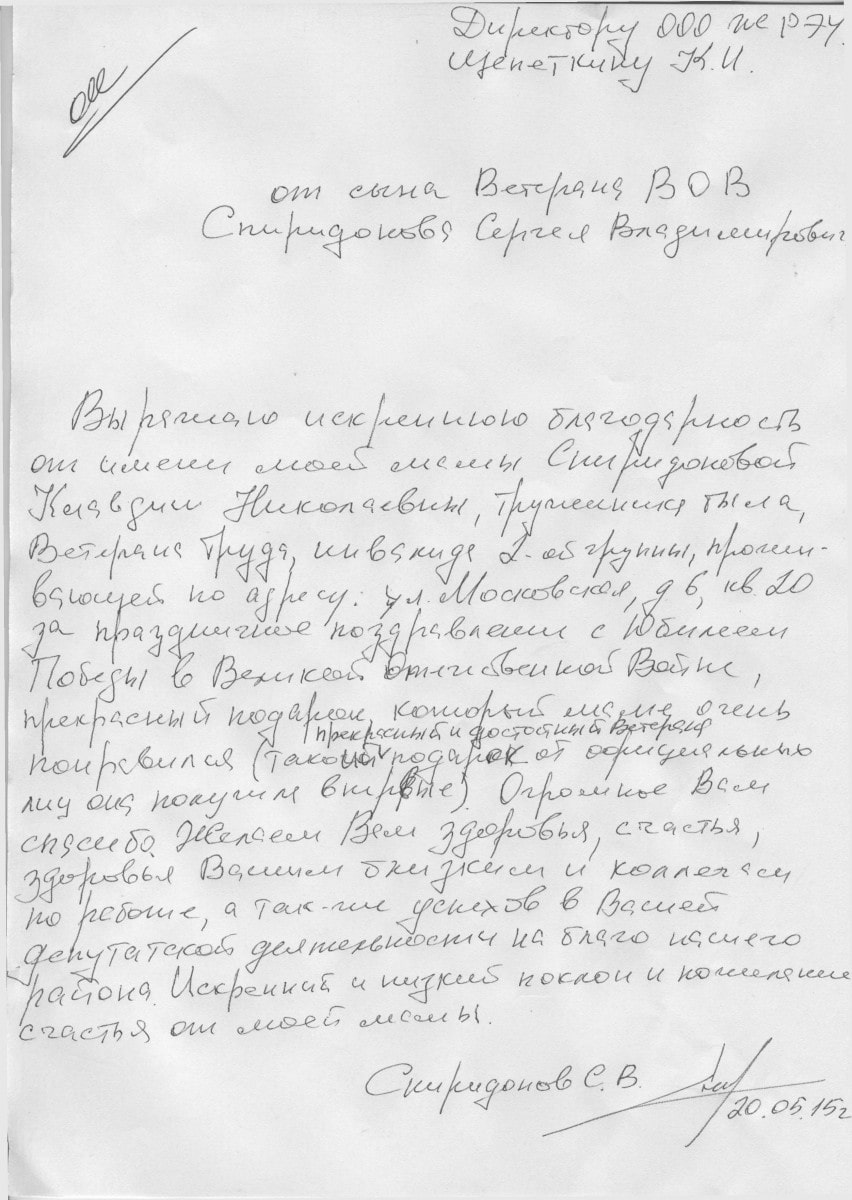 Директору ООО ЖЕ РЭУ.
Щепеткину К.И.
от сына Ветерана ВОВ
Спиридонова Сергея Владимирович
Выражаю искреннюю благодарность
от имени моей мамы Спиридоновой
Клавдии Николаевны, труженика тыла,
Ветерана труда, инвалида 2-ой группы, прожи-
вающей по адресу: ул. Московская, д 6, кв. 20
за праздничное поздравление с Юбилеем
Победы в Великой Отечественной Войне,
прекрасный подарок, который маме очень
прекрасный и достойный Ветерана
понравился (такой подарок от официальных
лиц она получила впервые). Огромное Вам
спасибо. Желаем Вам здоровья, счастья,
здоровья Вашим близким и коллегам
по работе, а так-же успехов в Вашей
депутатской деятельности на благо нашего
района. Искренний и низкий поклон и пожелание
счастья от моей мамы.
Спиридонов С. В.
20.05.15г